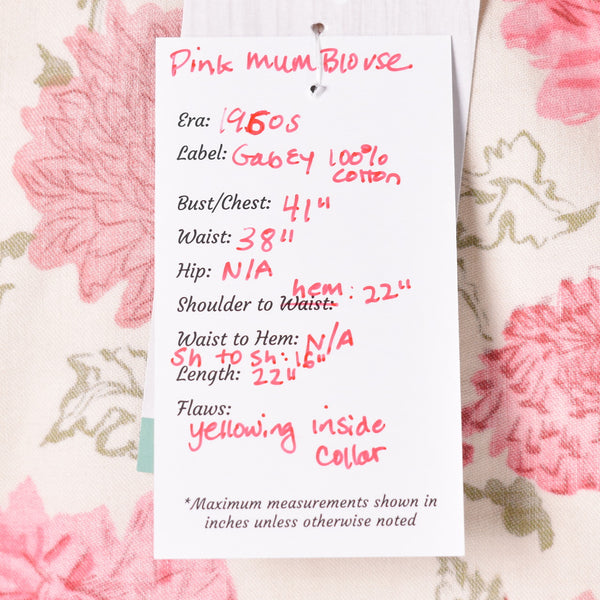 Pink Mum Blouse
Era: 1960s
Label: Gabey 100%
cotton
Bust/Chest: 41"
Waist: 38"
Hip: N/A
hem: 22"
Shoulder to Waist:
Waist to Hem: N/A
Sh to sh: 16"
Length: 22"
Flaws:
yellowing inside
collar
*Maximum measurements shown in
inches unless otherwise noted